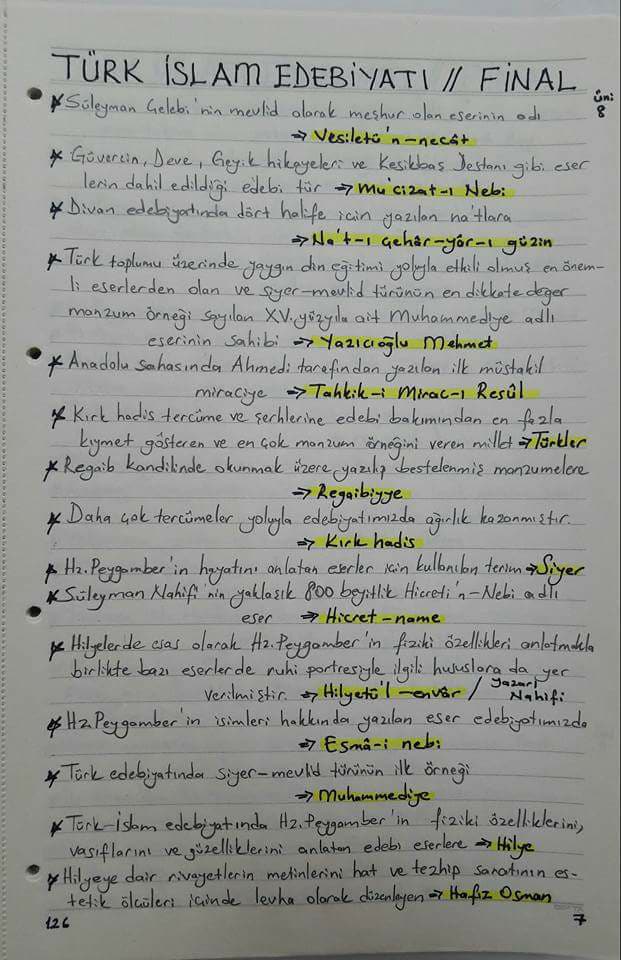 TÜRK İSLAM EDEBİYATI // FİNAL
üni
8
* Süleyman Çelebi'nin mevlid olarak meşhur olan eserinin adı
⇒ Vesiletü'n-necât
* Güvercin, Deve, Geyik hikayeleri ve Kesikbaş Destanı gibi eser
lerin dahil edildiği edebi tür ⇒ Mu'cizat-ı Nebi
* Divan edebiyatında dört halife için yazılan na'tlara
⇒ Na't-ı çehâr-yâr-ı güzin
* Türk toplumu üzerinde yaygın din eğitimi yoluyla etkili olmuş en önem-
li eserlerden olan ve siyer-mevlid türünün en dikkate değer
manzum örneği sayılan XV. yüzyıla ait Muhammediye adlı
eserinin sahibi ⇒ Yazıcıoğlu Mehmet
* Anadolu sahasında Ahmedi tarafından yazılan ilk müstakil
miraciye ⇒ Tahkik-i Mirac-ı Resûl
* Kırk hadis tercüme ve şerhlerine edebi bakımından en fazla
kıymet gösteren ve en çok manzum örneğini veren millet ⇒ Türkler
* Regaib kandilinde okunmak üzere yazılıp bestelenmiş manzumelere
⇒ Regaibiyye
* Daha çok tercümeler yoluyla edebiyatımızda ağırlık kazanmıştır.
⇒ Kırk hadis
* Hz. Peygamber'in hayatını anlatan eserler için kullanılan terim ⇒ Siyer
* Süleyman Nahifi'nin yaklaşık 800 beyitlik Hicreti'n-Nebi adlı
eser ⇒ Hicret-name
* Hilyelerde esas olarak Hz. Peygamber'in fiziki özellikleri anlatmakla
birlikte bazı eserlerde ruhi portresiyle ilgili hususlara da yer
verilmiştir. ⇒ Hilyetü'l-envâr / Yazarı Nahifi
* Hz. Peygamber'in isimleri hakkında yazılan eser edebiyatımızda
⇒ Esmâ-i nebi
* Türk edebiyatında siyer-mevlid türünün ilk örneği
⇒ Muhammediye
* Türk-İslam edebiyatında Hz. Peygamber'in fiziki özelliklerini,
vasıflarını ve güzelliklerini anlatan edebi eserlere ⇒ Hilye
* Hilyeye dair rivayetlerin metinlerini hat ve tezhip sanatının es-
tetik ölçüleri içinde levha olarak düzenleyen ⇒ Hafız Osman
126
7